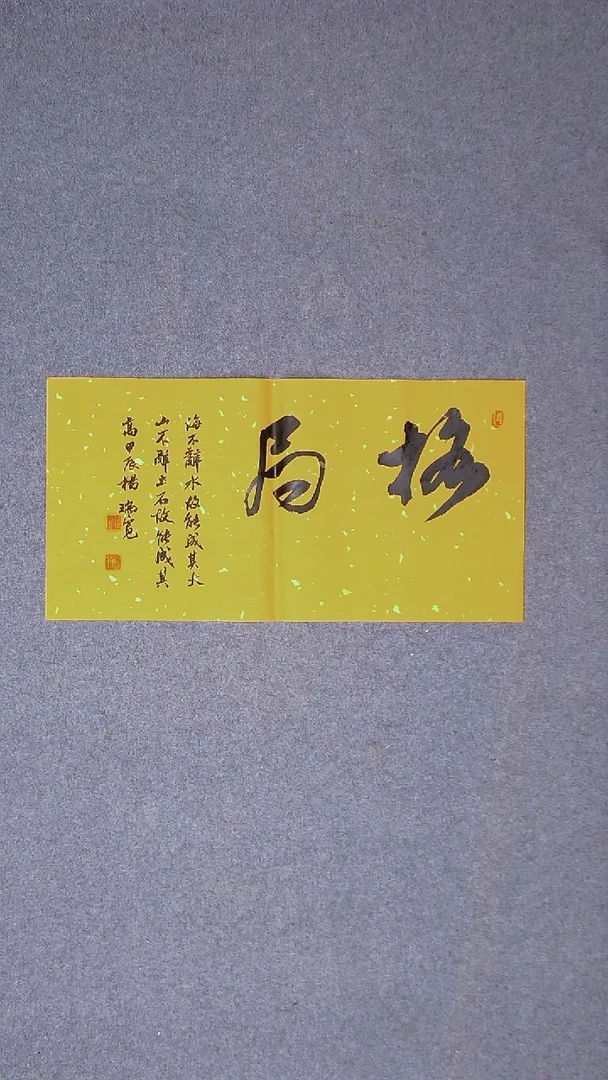 格局
海不辭水故能成其大
山不辭土石故能成其
高甲辰楊瑞寬